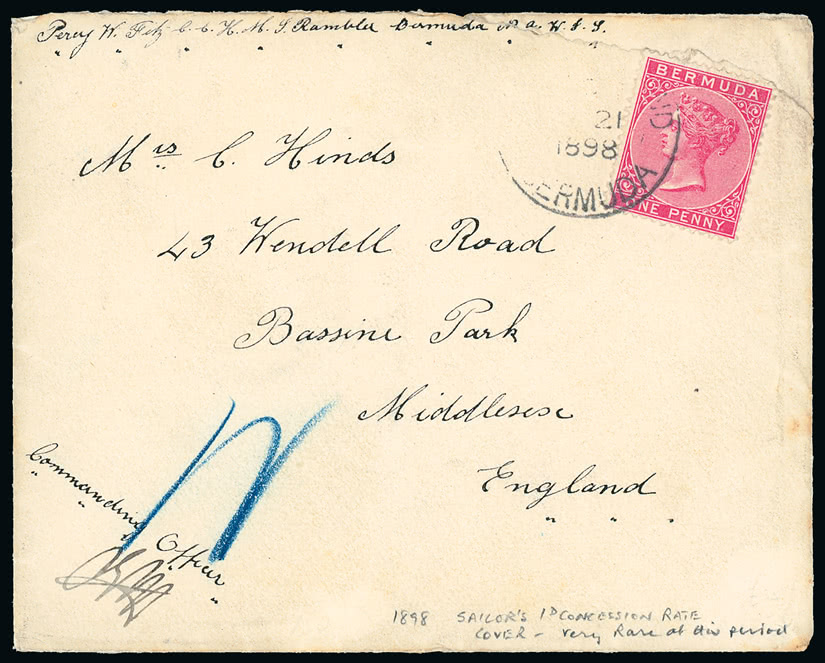 Percy W. Fitz C. C. H. M. S. Rambler Bermuda N. a. W. I. S.
BERMUDA
ONE PENNY
21
1898
BERMUDA
Mis C. Hinds
43 Wendell Road
Bassine Park
Middlesex
England
Commanding Officer
1898 SAILOR'S 1D CONCESSION RATE
COVER - Very Rare at this period